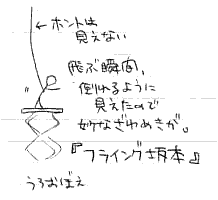 ←ホントは
見えない
飛ぶ瞬間、
倒れるように
見えたので
妙なざわめきが。
『フライング坂本』
うろおぼえ